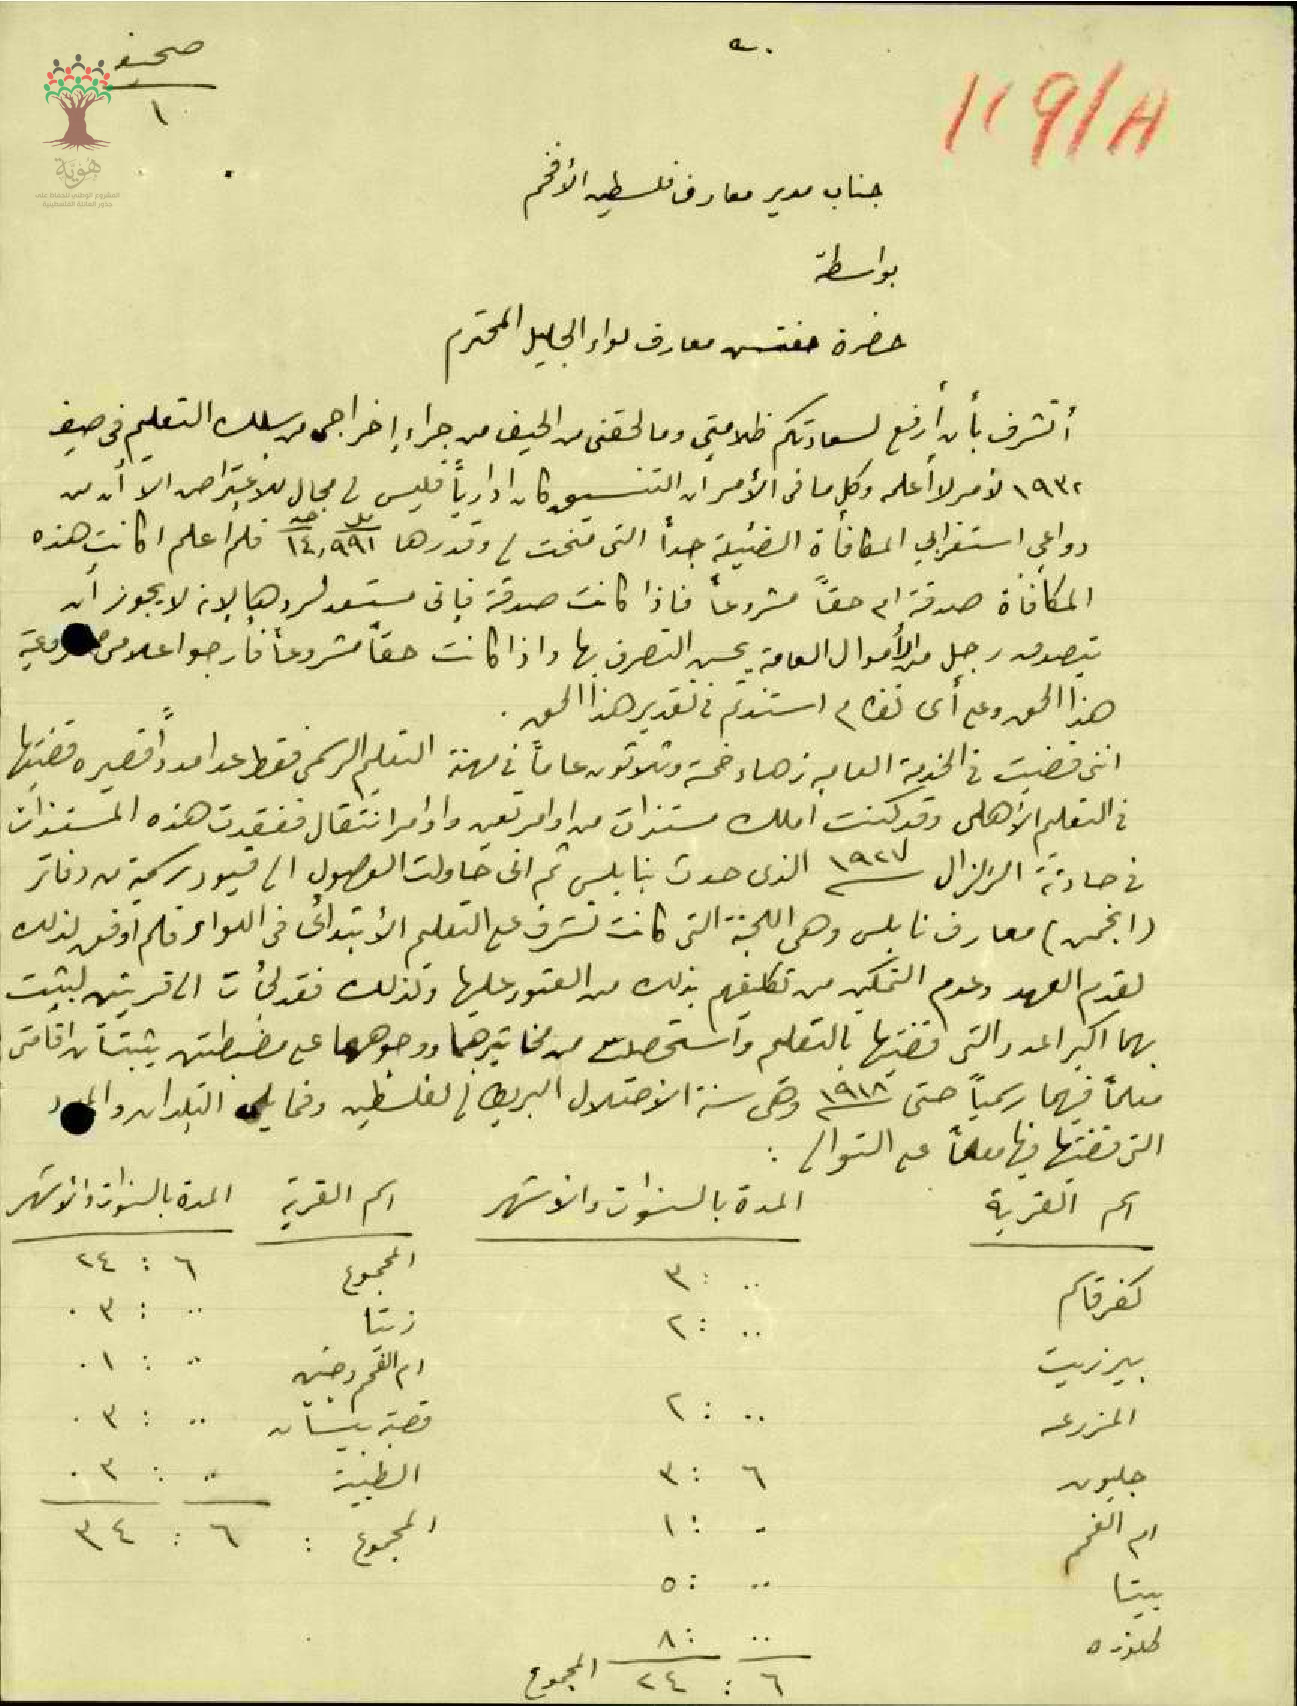 صحيفة
١
119/A
هُوِيَّة
المشروع الوطني للحفاظ على
جذور العائلة الفلسطينية
جناب مدير معارف فلسطين الأفخم
بواسطة
حضرة مفتش معارف لواء الجليل المحترم
أتشرف بأن أرفع لسعادتكم ظلامتي وما لحقني من الحيف من جراء إخراجي من سلك التعليم في صيف
١٩٣٢ لأمر لا أعلمه وكل ما في الأمر ان التنسيق كان ادارياً فليس لي مجال للاعتراض الا أن من
دواعي استغرابي المكافأة الضئيلة جداً التي منحت لي وقدرها ١٤,٩٩١ فلم أعلم اكانت هذه
المكافأة صدقة ام حقاً مشروعاً فاذا كانت صدقة فإني مستعد لردها لانه لا يجوز أن
يتصدق رجل من الأموال العامة يحسن التصرف بها واذا كانت حقاً مشروعاً فأرجو اعلامي
هذا الحق وعلى أى نظام استندتم في تقدير هذا الحق .
انني قضيت في الخدمة العامة زهاء خمسة وثلاثون عاماً في مهنة التعليم الرسمي فقط عدا مدداً قصيره قضيتها
في التعليم الأهلى وقد كنت أملك مستندات من اوامر تعيين واوامر انتقال ففقدت هذه المستندات
في حادثة الزلزال ١٩٢٧ الذى حدث بنابلس ثم انى حاولت الوصول الى قيود رسمية من دفاتر
(انجمن) معارف نابلس وهى اللجنة التى كانت تشرف على التعليم الأبتدائى فى اللواء فلم أوفق لذلك
لقدم العهد وعدم التمكين من تكليفهم بذلك من العثور عليها ولذلك فقد لجأت الى قريتين لبثت
بهما اكبر المدد التى قضيتها بالتعليم واستحصلت من مخاتيرهما ووجوههما على مضبطتين يثبتان اقامتى
معلماً فيهما رسمياً حتى ١٩١٨ وهى سنة الاحتلال البريطاني لفلسطين وفيما يلي البلدان والمدد
التى قضيتها فيها معلماً على التوالي :
اسم القرية المدة بالسنوات والاشهر اسم القرية المدة بالسنوات والاشهر
كفرقاسم ٠٠ : ٣ المجموع ٦ : ٢٤
بيرزيت ٠٠ : ٢ زيتا ٠٠ : ٠٣
المزرعه ٠٠ : ٢ ام الفحم وجنين ٠٠ : ٠١
جلبون ٦ : ٣ قصبة بيسان ٠٠ : ٠٣
ام الفحم ٠ : ١ الطيبة ٠٠ : ٠٣
بيتا ٠٠ : ٥ المجموع : ٦ : ٣٤
طلوزه ٠٠ : ٨
٦ : ٢٤ المجموع